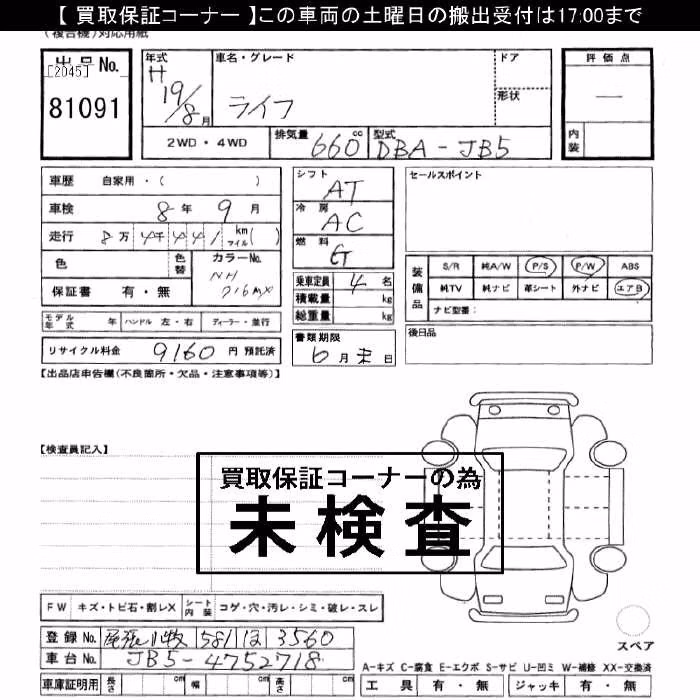 【 買取保証コーナー 】この車両の土曜日の搬出受付は17:00まで
(複合機)対応用紙
出品 No.
[2045]
81091
年式
H
19/8月
車名・グレード
ライフ
ドア
形状
評価点
—
内装
2WD・4WD
排気量
660 cc
型式
DBA-JB5
車歴 自家用・( )
車検 8年 9月
走行 8万 4千 4 4 1 km マイル( )
色
色替
カラーNo.
NH
716MX
保証書 有・無
シフト
AT
冷房
AC
燃料
G
乗車定員 4 名
積載量 kg
総重量 kg
セールスポイント
装備品
S/R 純A/W P/S P/W ABS
純TV 純ナビ 革シート 外ナビ エアB
ナビ型番:
モデル年式 年
ハンドル 左・右
ディーラー・並行
リサイクル料金 9160 円 預託済
書類期限
6月末日
後日品
【出品店申告欄(不良箇所・欠品・注意事項等)】
【検査員記入】
買取保証コーナーの為
未検査
FW キズ・トビ石・割レX
シート内装 コゲ・穴・汚レ・シミ・破レ・スレ
登録 No. 尾張小牧 581 ほ 3560
車台 No. JB5-4752718
スペア
A-キズ C-腐食 E-エクボ S-サビ U-凹ミ W-補修 XX-交換済
車庫証明用 長さ cm 幅 cm 高さ cm
工具 有・無 ジャッキ 有・無